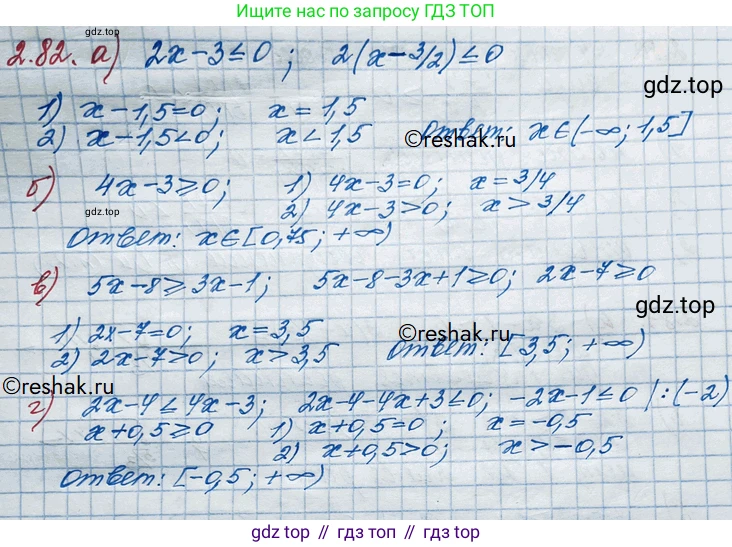 Ищите нас по запросу ГДЗ ТОП
gdz.top
2.82. а) 2x-3≤0; 2(x-3/2)≤0
gdz.top
1) x-1,5=0; x=1,5
2) x-1,5<0; x<1,5 Ответ: x∈(-∞; 1,5]
©reshak.ru
б) 4x-3≥0; 1) 4x-3=0; x=3/4
2) 4x-3>0; x>3/4
gdz.top
Ответ: x∈[0,75; +∞)
в) 5x-8≥3x-1; 5x-8-3x+1≥0; 2x-7≥0
gdz.top
1) 2x-7=0; x=3,5
2) 2x-7>0; x>3,5 Ответ: [3,5; +∞)
©reshak.ru
©reshak.ru
г) 2x-4≤4x-3; 2x-4-4x+3≤0; -2x-1≤0 |:(-2)
x+0,5≥0 1) x+0,5=0; x=-0,5
2) x+0,5>0; x>-0,5
Ответ: [-0,5; +∞)
gdz.top // гдз топ // gdz.top